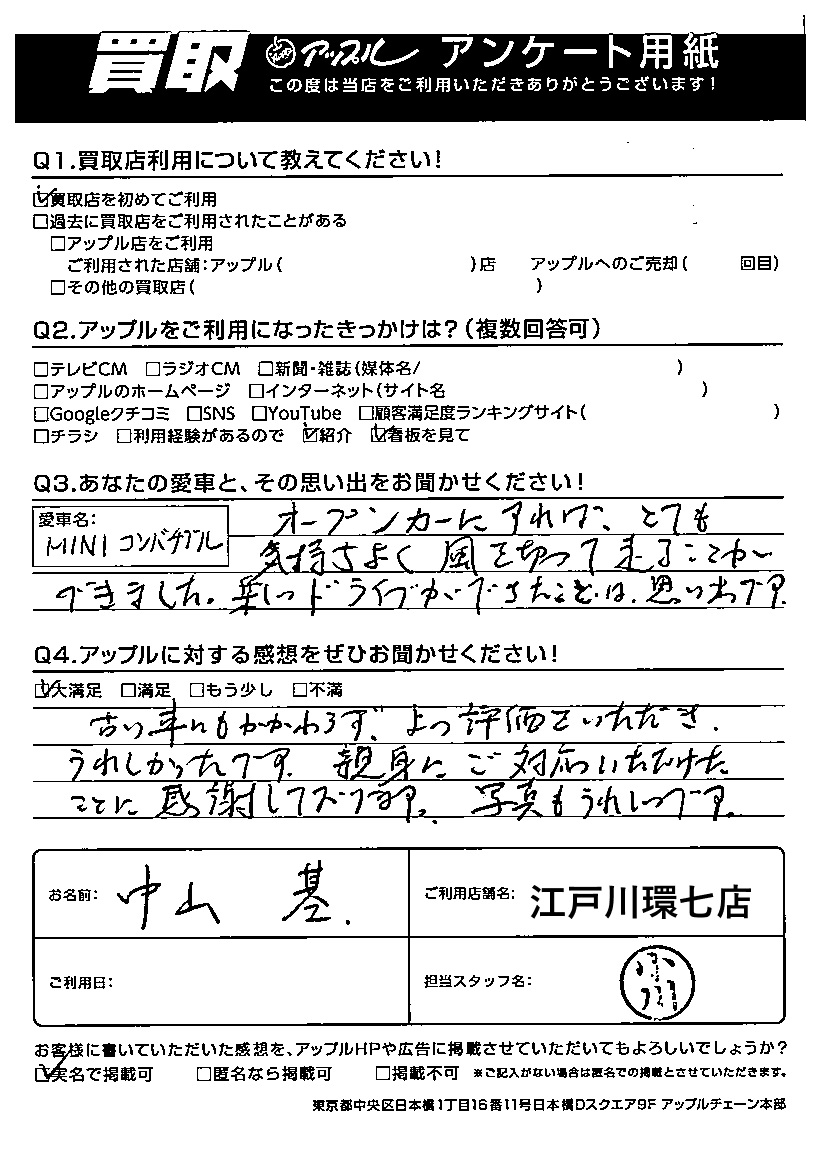 買取 アップル アンケート用紙
この度は当店をご利用いただきありがとうございます!
Q1.買取店利用について教えてください!
☑買取店を初めてご利用
□過去に買取店をご利用されたことがある
□アップル店をご利用
ご利用された店舗:アップル( )店 アップルへのご売却( 回目)
□その他の買取店( )
Q2.アップルをご利用になったきっかけは?(複数回答可)
□テレビCM □ラジオCM □新聞・雑誌(媒体名/ )
□アップルのホームページ □インターネット(サイト名 )
□Googleクチコミ □SNS □YouTube □顧客満足度ランキングサイト( )
□チラシ □利用経験があるので ☑紹介 ☑看板を見て
Q3.あなたの愛車と、その思い出をお聞かせください!
愛車名:
MINI コンバチブル
オープンカーにすれば、とても
気持ちよく風を切って走ることが
できました。楽しいドライブができたことは、思い出です。
Q4.アップルに対する感想をぜひお聞かせください!
☑大満足 □満足 □もう少し □不満
古い車にもかかわらず、よい評価をいただき、
うれしかったです。親身にご対応いただけた
ことに感謝しております。写真もうれしいです。
お名前: 中山 基.
ご利用店舗名: 江戸川環七店
ご利用日:
担当スタッフ名:
お客様に書いていただいた感想を、アップルHPや広告に掲載させていただいてもよろしいでしょうか?
☑実名で掲載可 □匿名なら掲載可 □掲載不可 ※ご記入がない場合は匿名での掲載とさせていただきます。
東京都中央区日本橋1丁目16番11号日本橋Dスクエア9F アップルチェーン本部